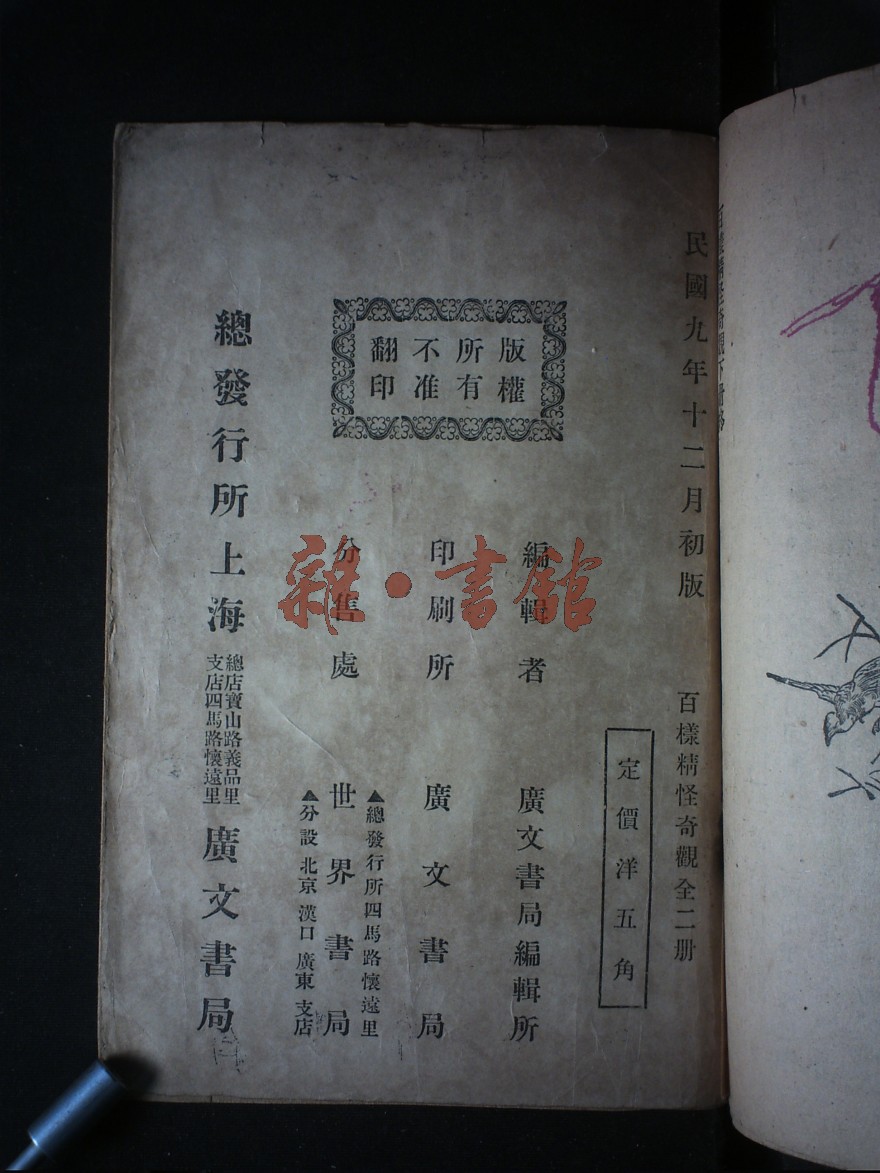 民國九年十二月初版
百樣精怪奇觀全二册
定價洋五角
版權
所有
不准
翻印
編輯者 廣文書局編輯所
印刷所 廣文書局
分售處 世界書局
▲總發行所四馬路懷遠里
▲分設北京漢口廣東支店
總發行所上海
總店寶山路義品里
支店四馬路懷遠里
廣文書局
雜·書館